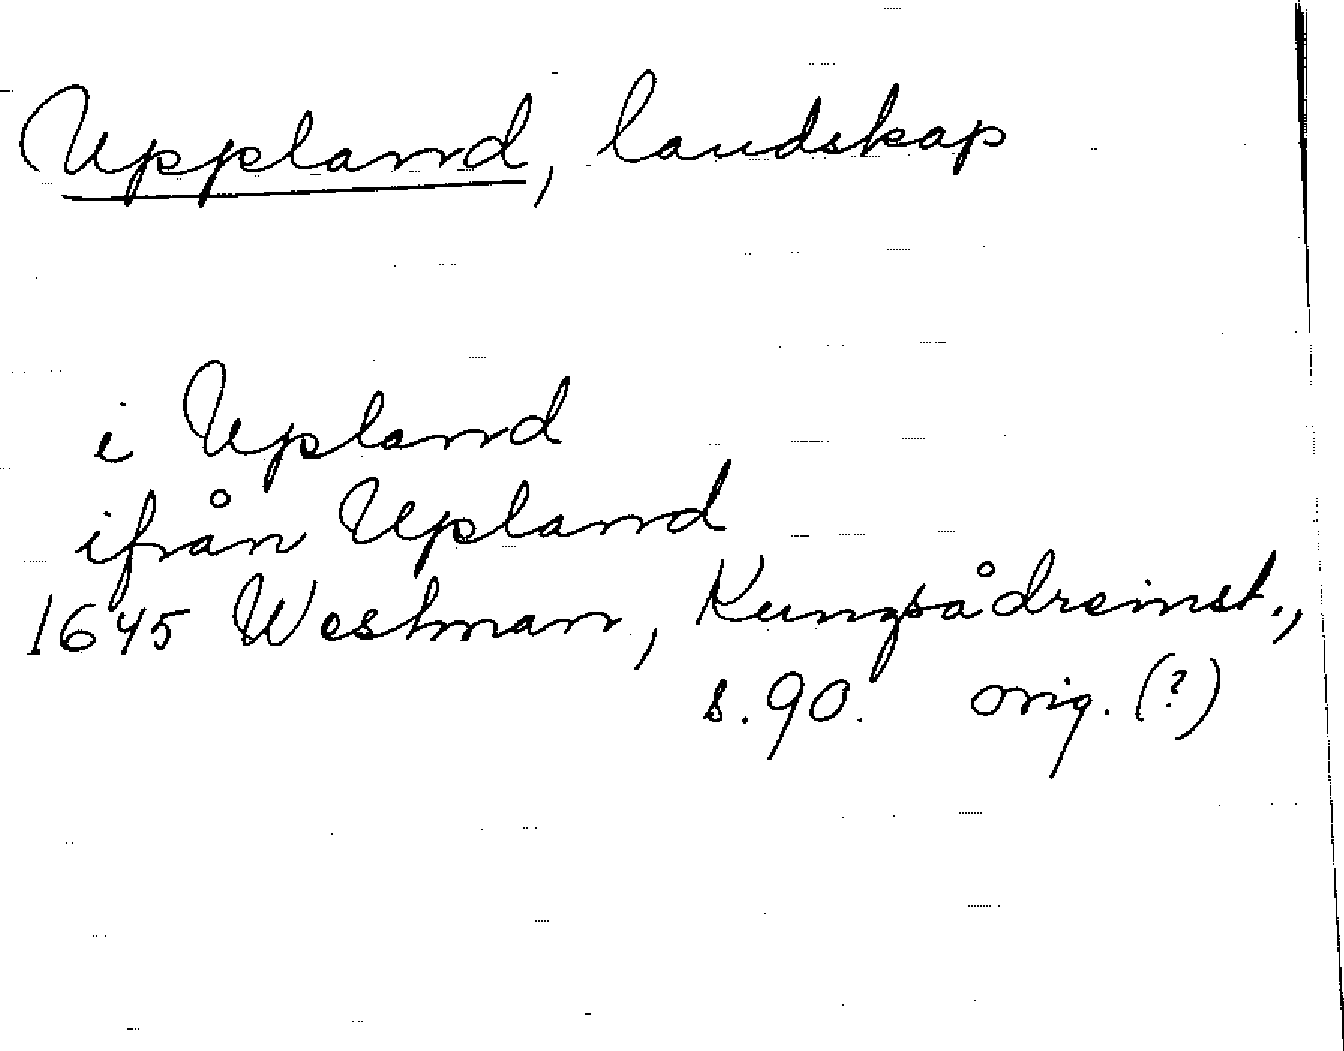 Uppland, landskap
i Upland
ifrån Upland
1645 Westman, Kungsådreinst.,
s. 90. orig. (?)